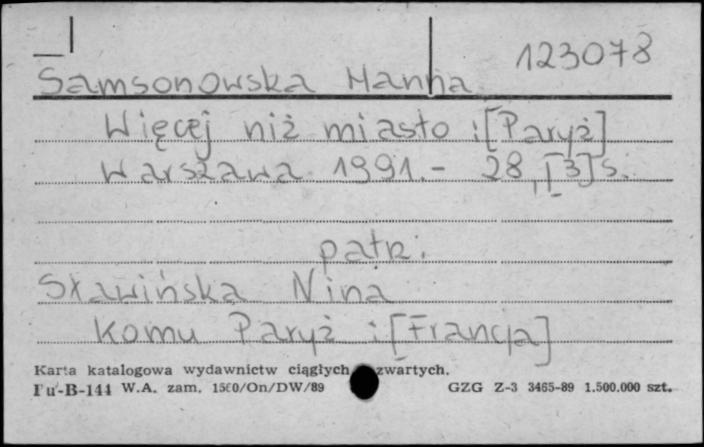 123078
Samsonowska Hanna
Więcej niż miasto : [Paryż]
Warszawa 1991.- 28, [3] s.
patrz:
Sławińska Nina
Komu Paryż : [Francja]
Karta katalogowa wydawnictw ciągłych zwartych.
Pu-B-144 W.A. zam. 1560/On/DW/89 GZG Z-3 3465-89 1.500.000 szt.